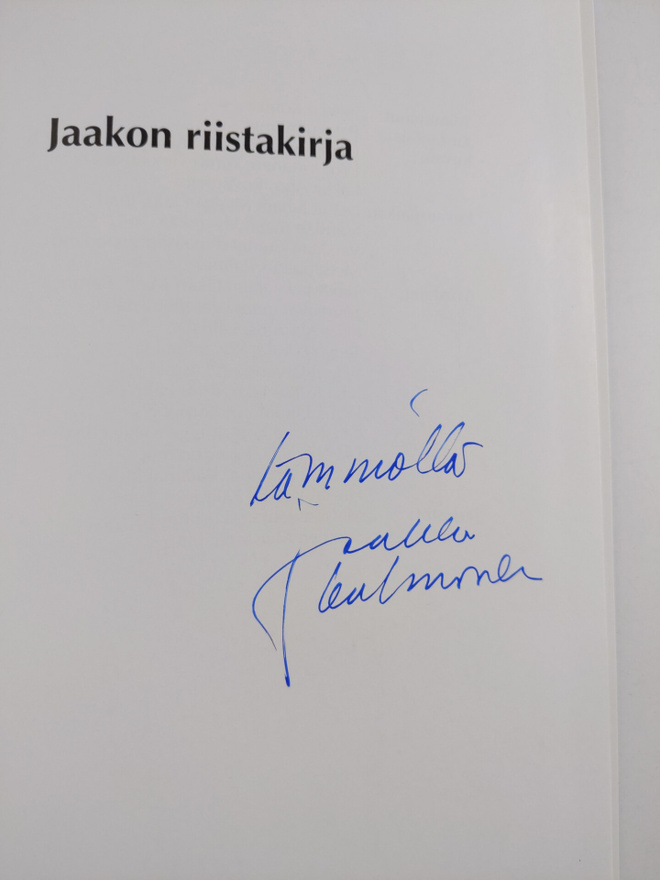 Jaakon riistakirja
Lämmöllä
Jaakko
Kolmonen